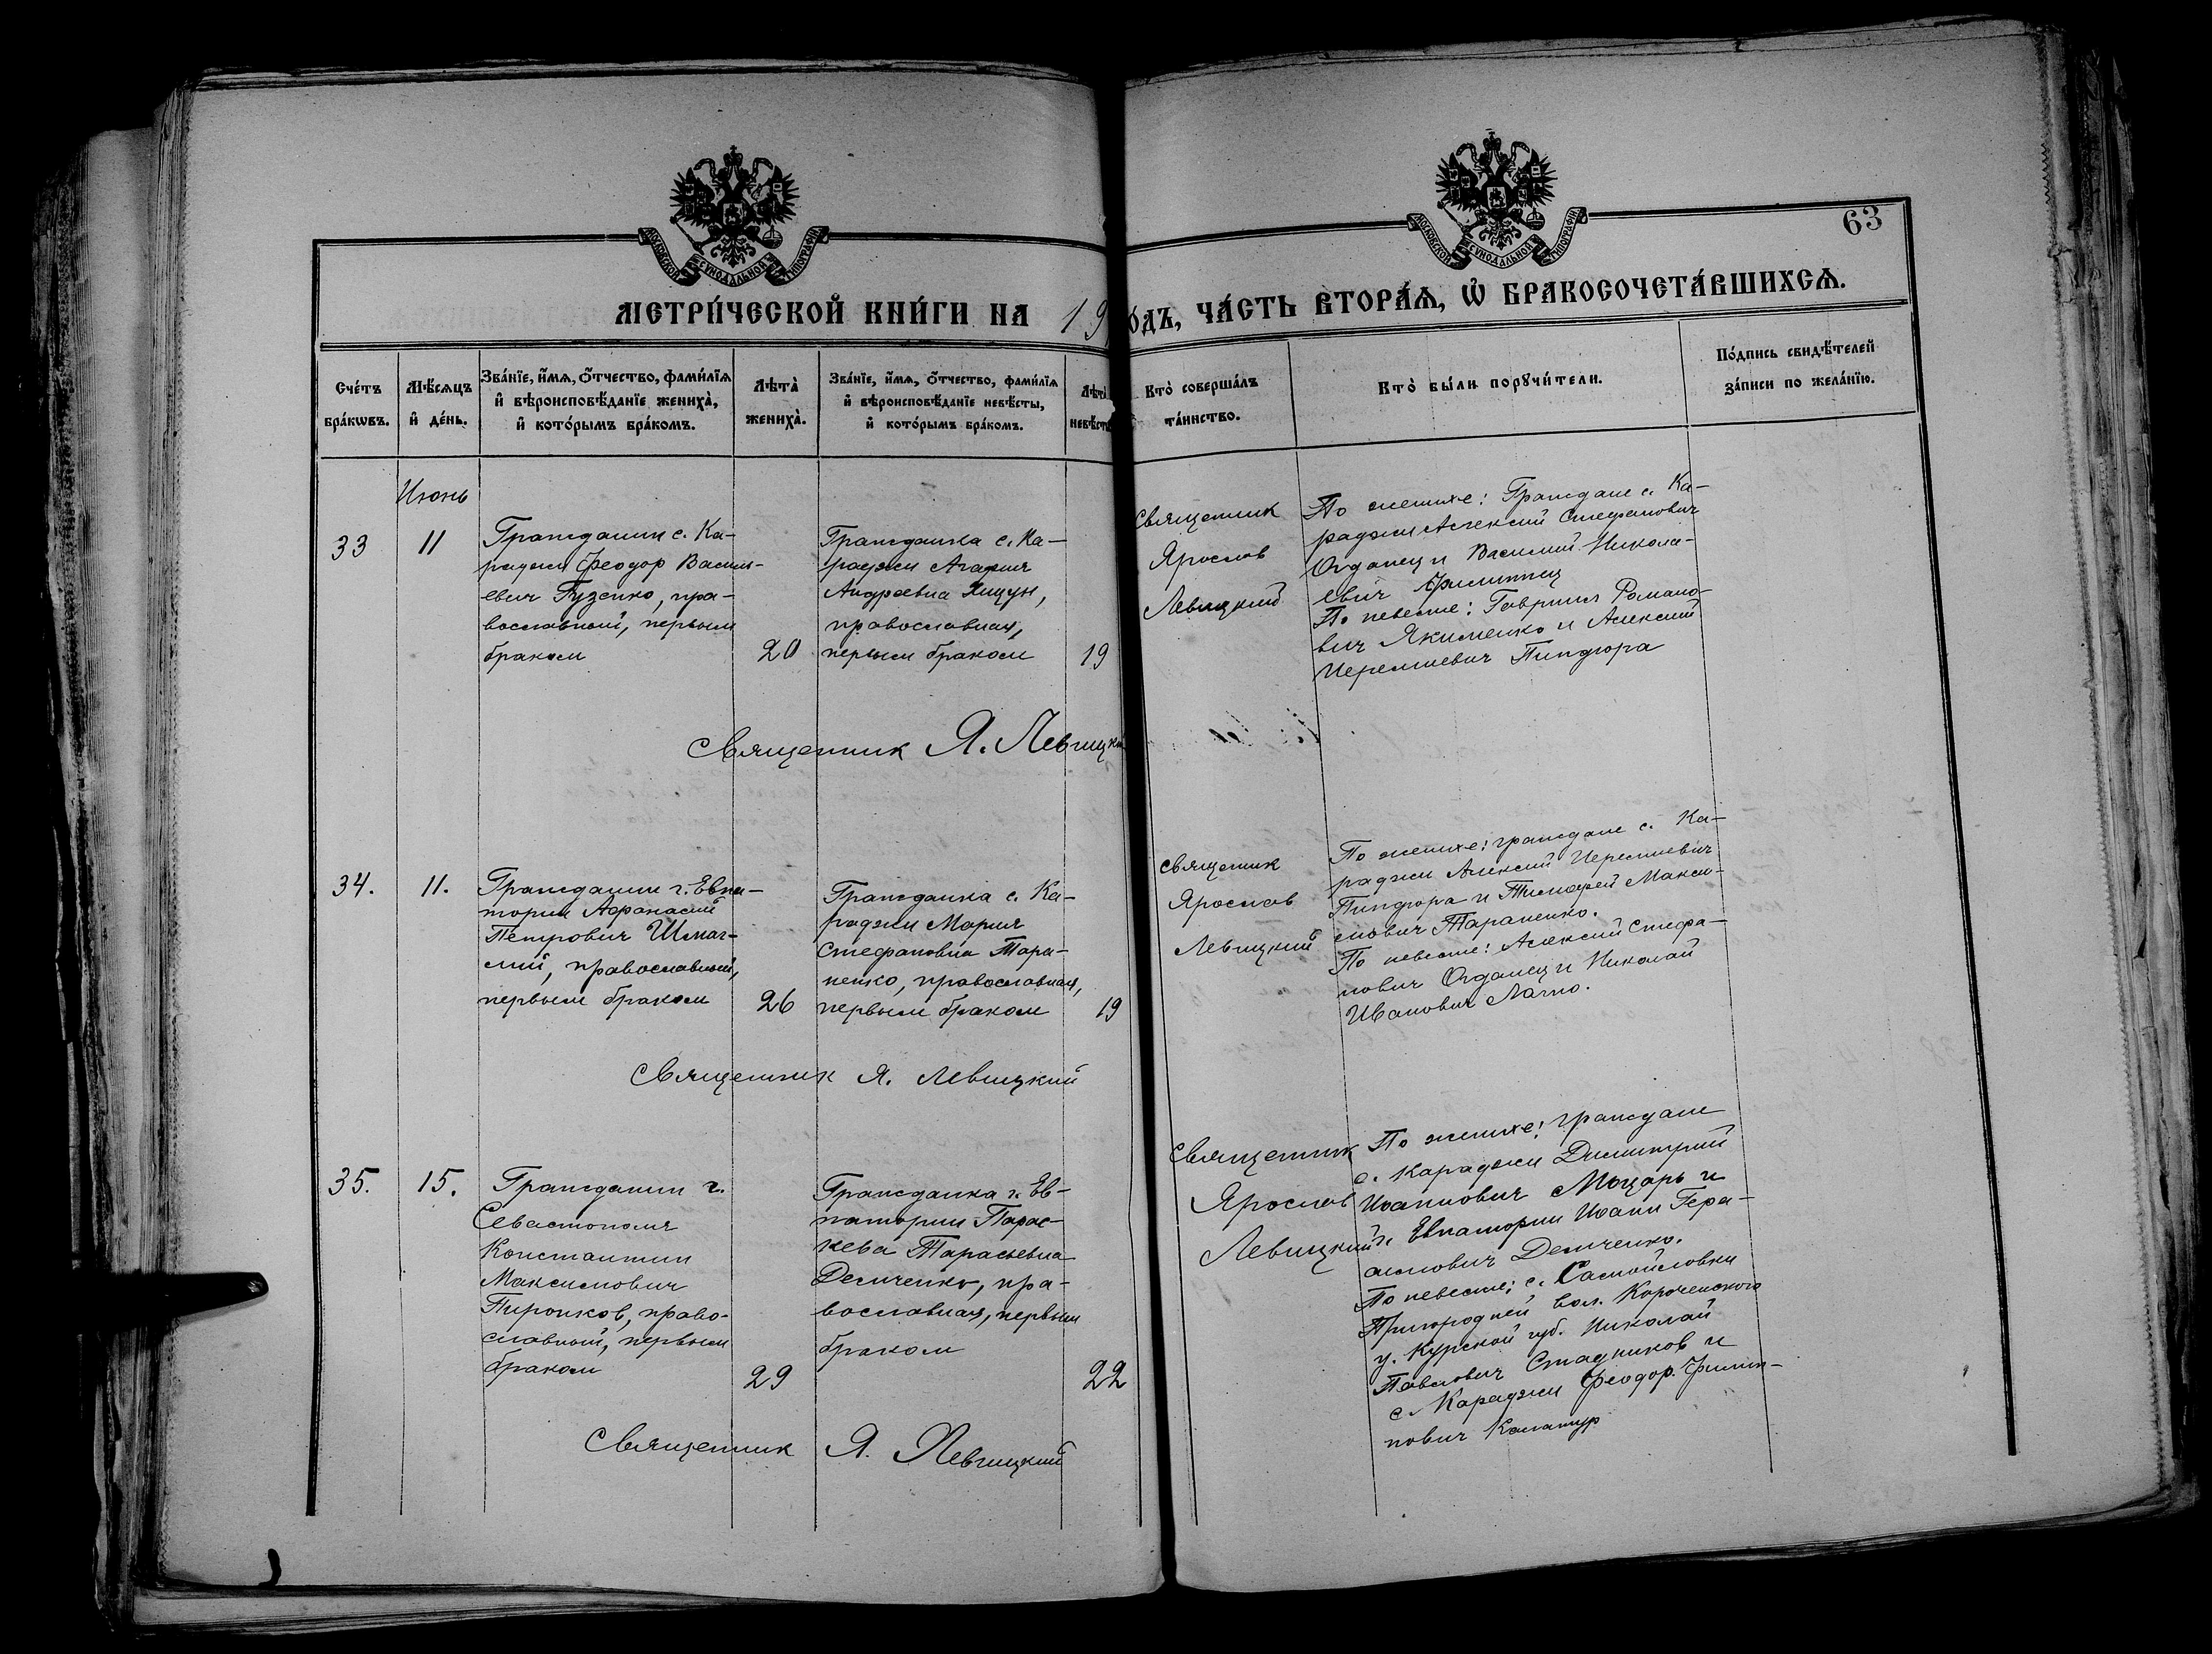 МОСКОВСКОЙ СѴНОДАЛЬНОЙ ТИПОГРАФІИ
МОСКОВСКОЙ СѴНОДАЛЬНОЙ ТИПОГРАФІИ
63
МЕТРИ́ЧЕСКОЙ КНИ́ГИ НА 19
О́ДЪ, ЧА́СТЬ ВТОРА́Я, Ѡ҆ БРАКОСОЧЕТА́ВШИХСЯ.
Сче́тъ
бра́кѡвъ.
Мѣ́сяцъ
и҆ де́нь.
Зва́нїе, и҆́мя, ѻ҆́тчество, фами́лїя
и҆ вѣроисповѣ́данїе жениха̀,
и҆ кото́рымъ бра́комъ.
Лѣта̀
жениха̀.
Зва́нїе, и҆́мя, ѻ҆́тчество, фами́лїя
и҆ вѣроисповѣ́данїе невѣ́сты,
и҆ кото́рымъ бра́комъ.
Лѣта̀
невѣ́ст
Кто̀ соверша́лъ
та́инство.
Кто̀ бы́ли порꙋчи́тели.
По́дпись свидѣ́телей
за́писи по жела́нїю.
Июнь
33
11
Гражданин с. Ка-
раджи Феодор Василь-
евич Гузенко, пра-
вославный, первым
браком
20
Гражданка с. Ка-
раджи Агафия
Андреевна Яицун,
православная,
первым браком
19
Священник
Ярослав
Левицкий
По женихе: Граждане с. Ка-
раджи Алексий Стефанович
Огданец и Василий Никола-
евич Филиппец
По невесте: Гавриил Романо-
вич Якименко и Алексий
Иеремиевич Пиндюра
Священник Я. Левицки
34.
11.
Гражданин г. Евпа-
тории Афанасий
Петрович Шмаг-
лий, православный,
первым браком
26
Гражданка с. Ка-
раджи Мария
Стефановна Тара-
ненко, православная,
первым браком
19
Священник
Ярослав
Левицкий
По женихе: граждане с. Ка-
раджи Алексий Иеремиевич
Пиндюра и Тимофей Макси-
мович Тараненко.
По невесте: Алексий Стефа-
нович Огданец и Николай
Иванович Лагно.
Священник Я. Левицкий
35.
15.
Гражданин г.
Севастополя
Константин
Максимович
Пиронков, право-
славный, первым
браком
29
Гражданка г. Ев-
патории Парас-
кева Тарасьевна
Демченко, пра-
вославная, первым
браком
22
Священник
Ярослав
Левицкий
По женихе: граждане
с. Караджи Димитрий
Иоаннович Моцарь и
г. Евпатории Иоанн Гера-
симович Демченко.
По невесте: с. Самойловки
Пригородней вол. Короченского
у. Курской губ. Николай
Павлович Стадников и
с. Караджи Феодор Филип-
пович Калатур
Священник Я. Левицкий